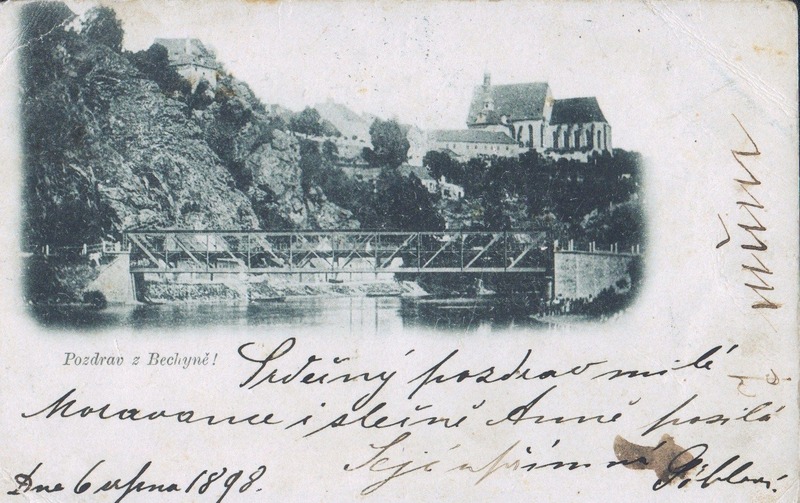 Pozdrav z Bechyně!
Srdečný pozdrav milé
Moravance i slečně Anně posílá
Její upřímná
Dne 6 srpna 1898.